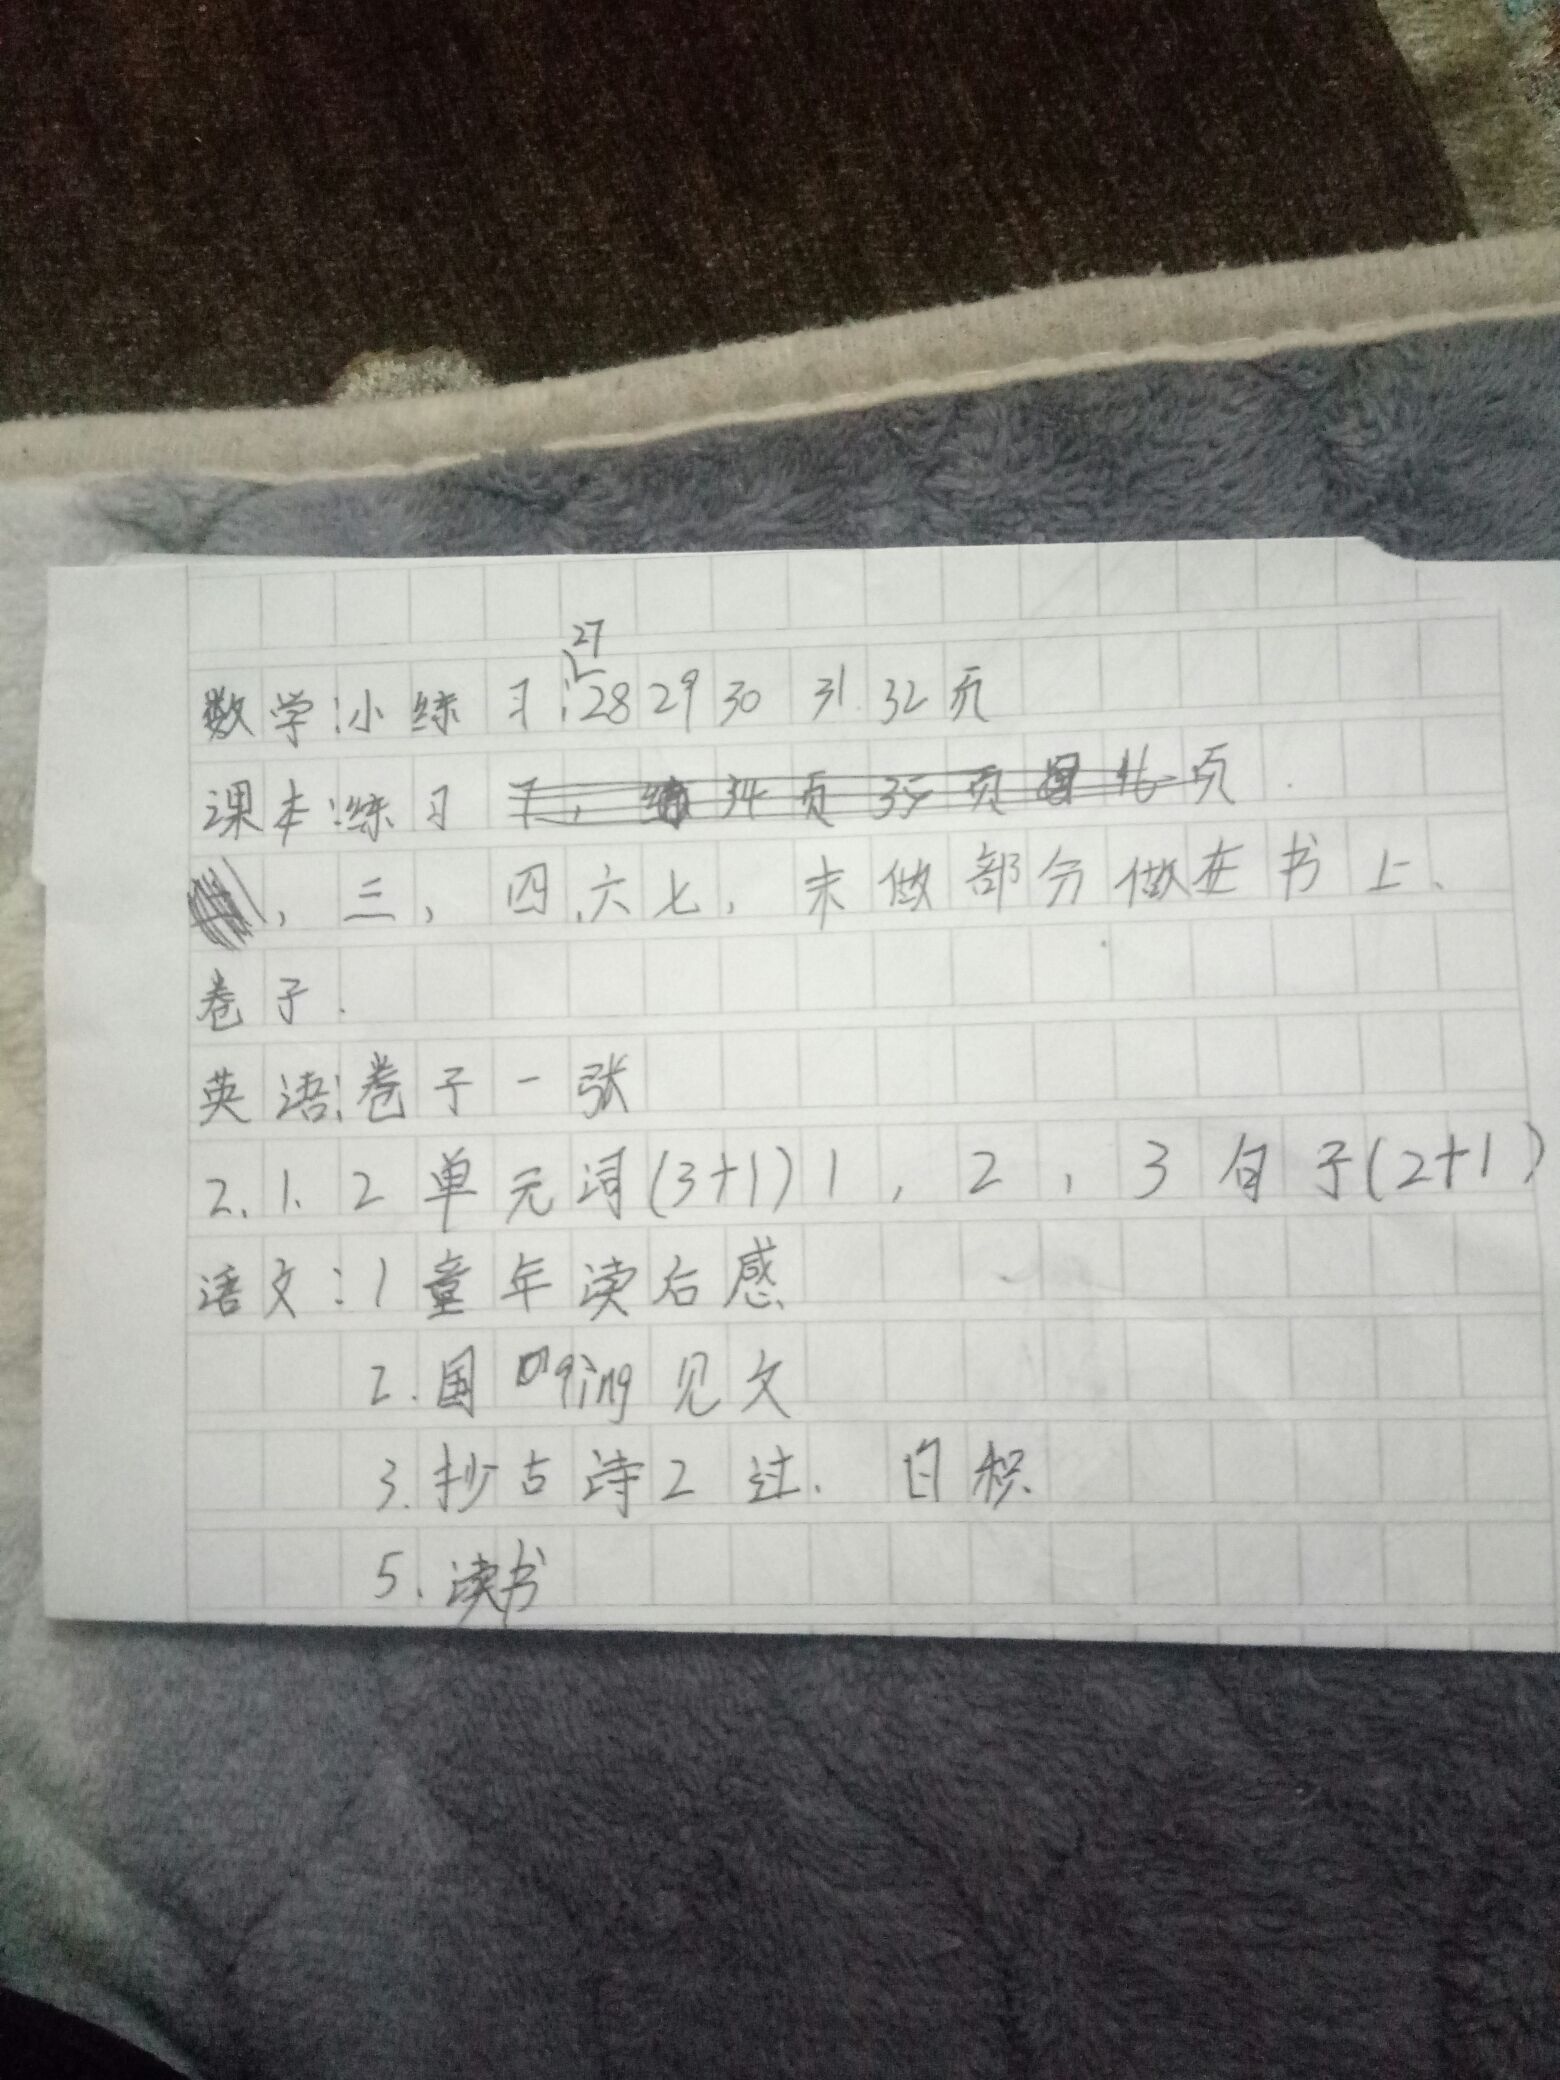 27
数学:小练习:28 29 30 31 32页
课本:练习
,三,四、六七,未做部分做在书上、
卷子.
英语:卷子一张
2.1.2单元词(3+1)1,2,3句子(2+1)
语文:1童年读后感
2.国qing见文
3.抄古诗2过.日积
5.读书